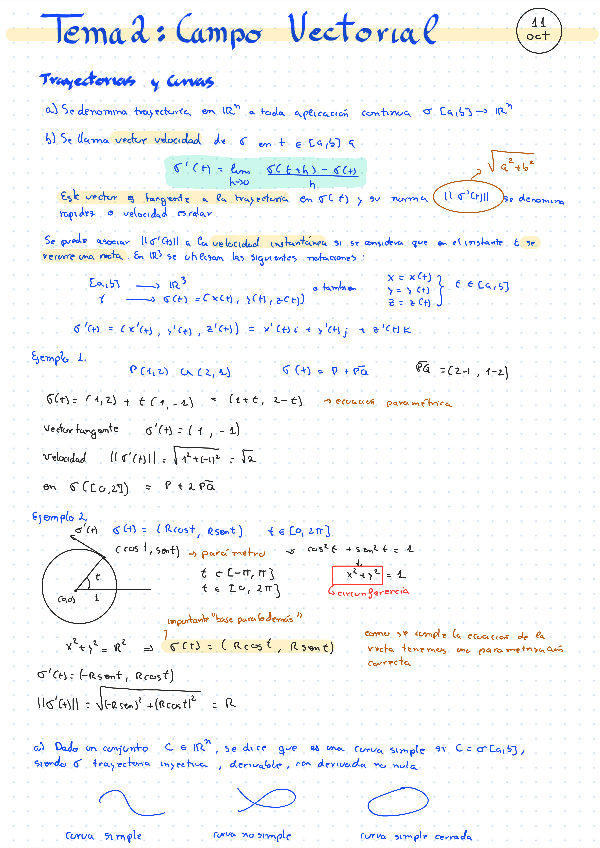 Tema 2: Campo Vectorial
11 oct
Trayectorias y Curvas
a) Se denomina trayectoria en ℝⁿ a toda aplicación continua σ [a,b] → ℝⁿ
b) Se llama vector velocidad de σ en t ∈ [a,b] a
σ'(t) = lim h→0 (σ(t+h) - σ(t))/h
√(a²+b²)
Este vector es tangente a la trayectoria en σ(t) y su norma ||σ'(t)|| se denomina
rapidez o velocidad escalar
Se puede asociar ||σ'(t)|| a la velocidad instantánea si se considera que en el instante t se
recorre una nota. En ℝ³ se utilizan las siguientes notaciones:
[a,b] → ℝ³ o tambien x = x(t) y = y(t) z = z(t) } t ∈ [a,b]
t → σ(t) = (x(t), y(t), z(t))
σ'(t) = (x'(t), y'(t), z'(t)) = x'(t)i + y'(t)j + z'(t)k
Ejemplo 1.
P(1,2) Q(2,1) σ(t) = P + PQ PQ = (2-1, 1-2)
σ(t) = (1,2) + t(1,-1) = (1+t, 2-t) → ecuacion paramétrica
vector tangente σ'(t) = (1, -1)
velocidad ||σ'(t)|| = √(1²+(-1)²) = √2
en σ([0,2]) = P + 2PQ
Ejemplo 2
σ'(t) σ(t) = (R cost, R sent) t ∈ [0, 2π]
(cos t, sent) → parámetro → cos²t + sen²t = 1
t ∈ [-π, π]
t ∈ [0, 2π]
x²+y² = 1
circunferencia
t
(0,0) 1
importante "base para lo demás"
x²+y² = R² ⇒ σ(t) = (R cost, R sent)
como se cumple la ecuacion de la
recta tenemos una parametrización
correcta
σ'(t) = (-R sent, R cost)
||σ'(t)|| = √((-R sen)² + (R cost)²) = R
a) Dado un conjunto C ∈ ℝⁿ, se dice que es una curva simple si C = σ[a,b],
siendo σ trayectoria inyectiva, derivable, con derivada no nula
curva simple
curva no simple
curva simple cerrada